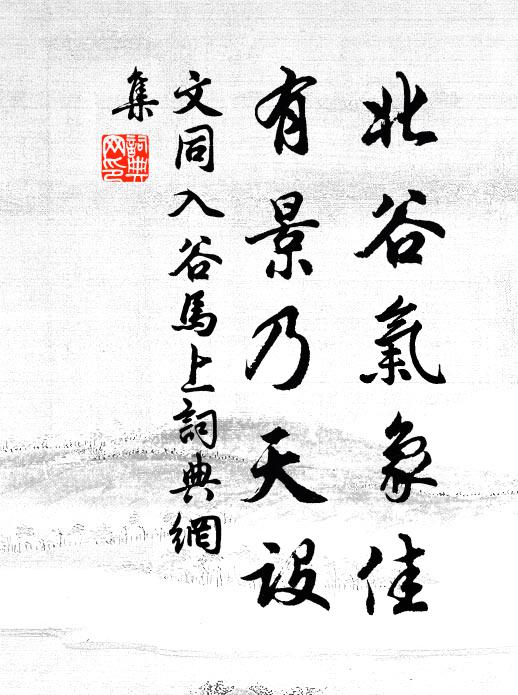 北谷氣象佳
有景乃天設
文同入谷馬上詞典網
集
詞典網印